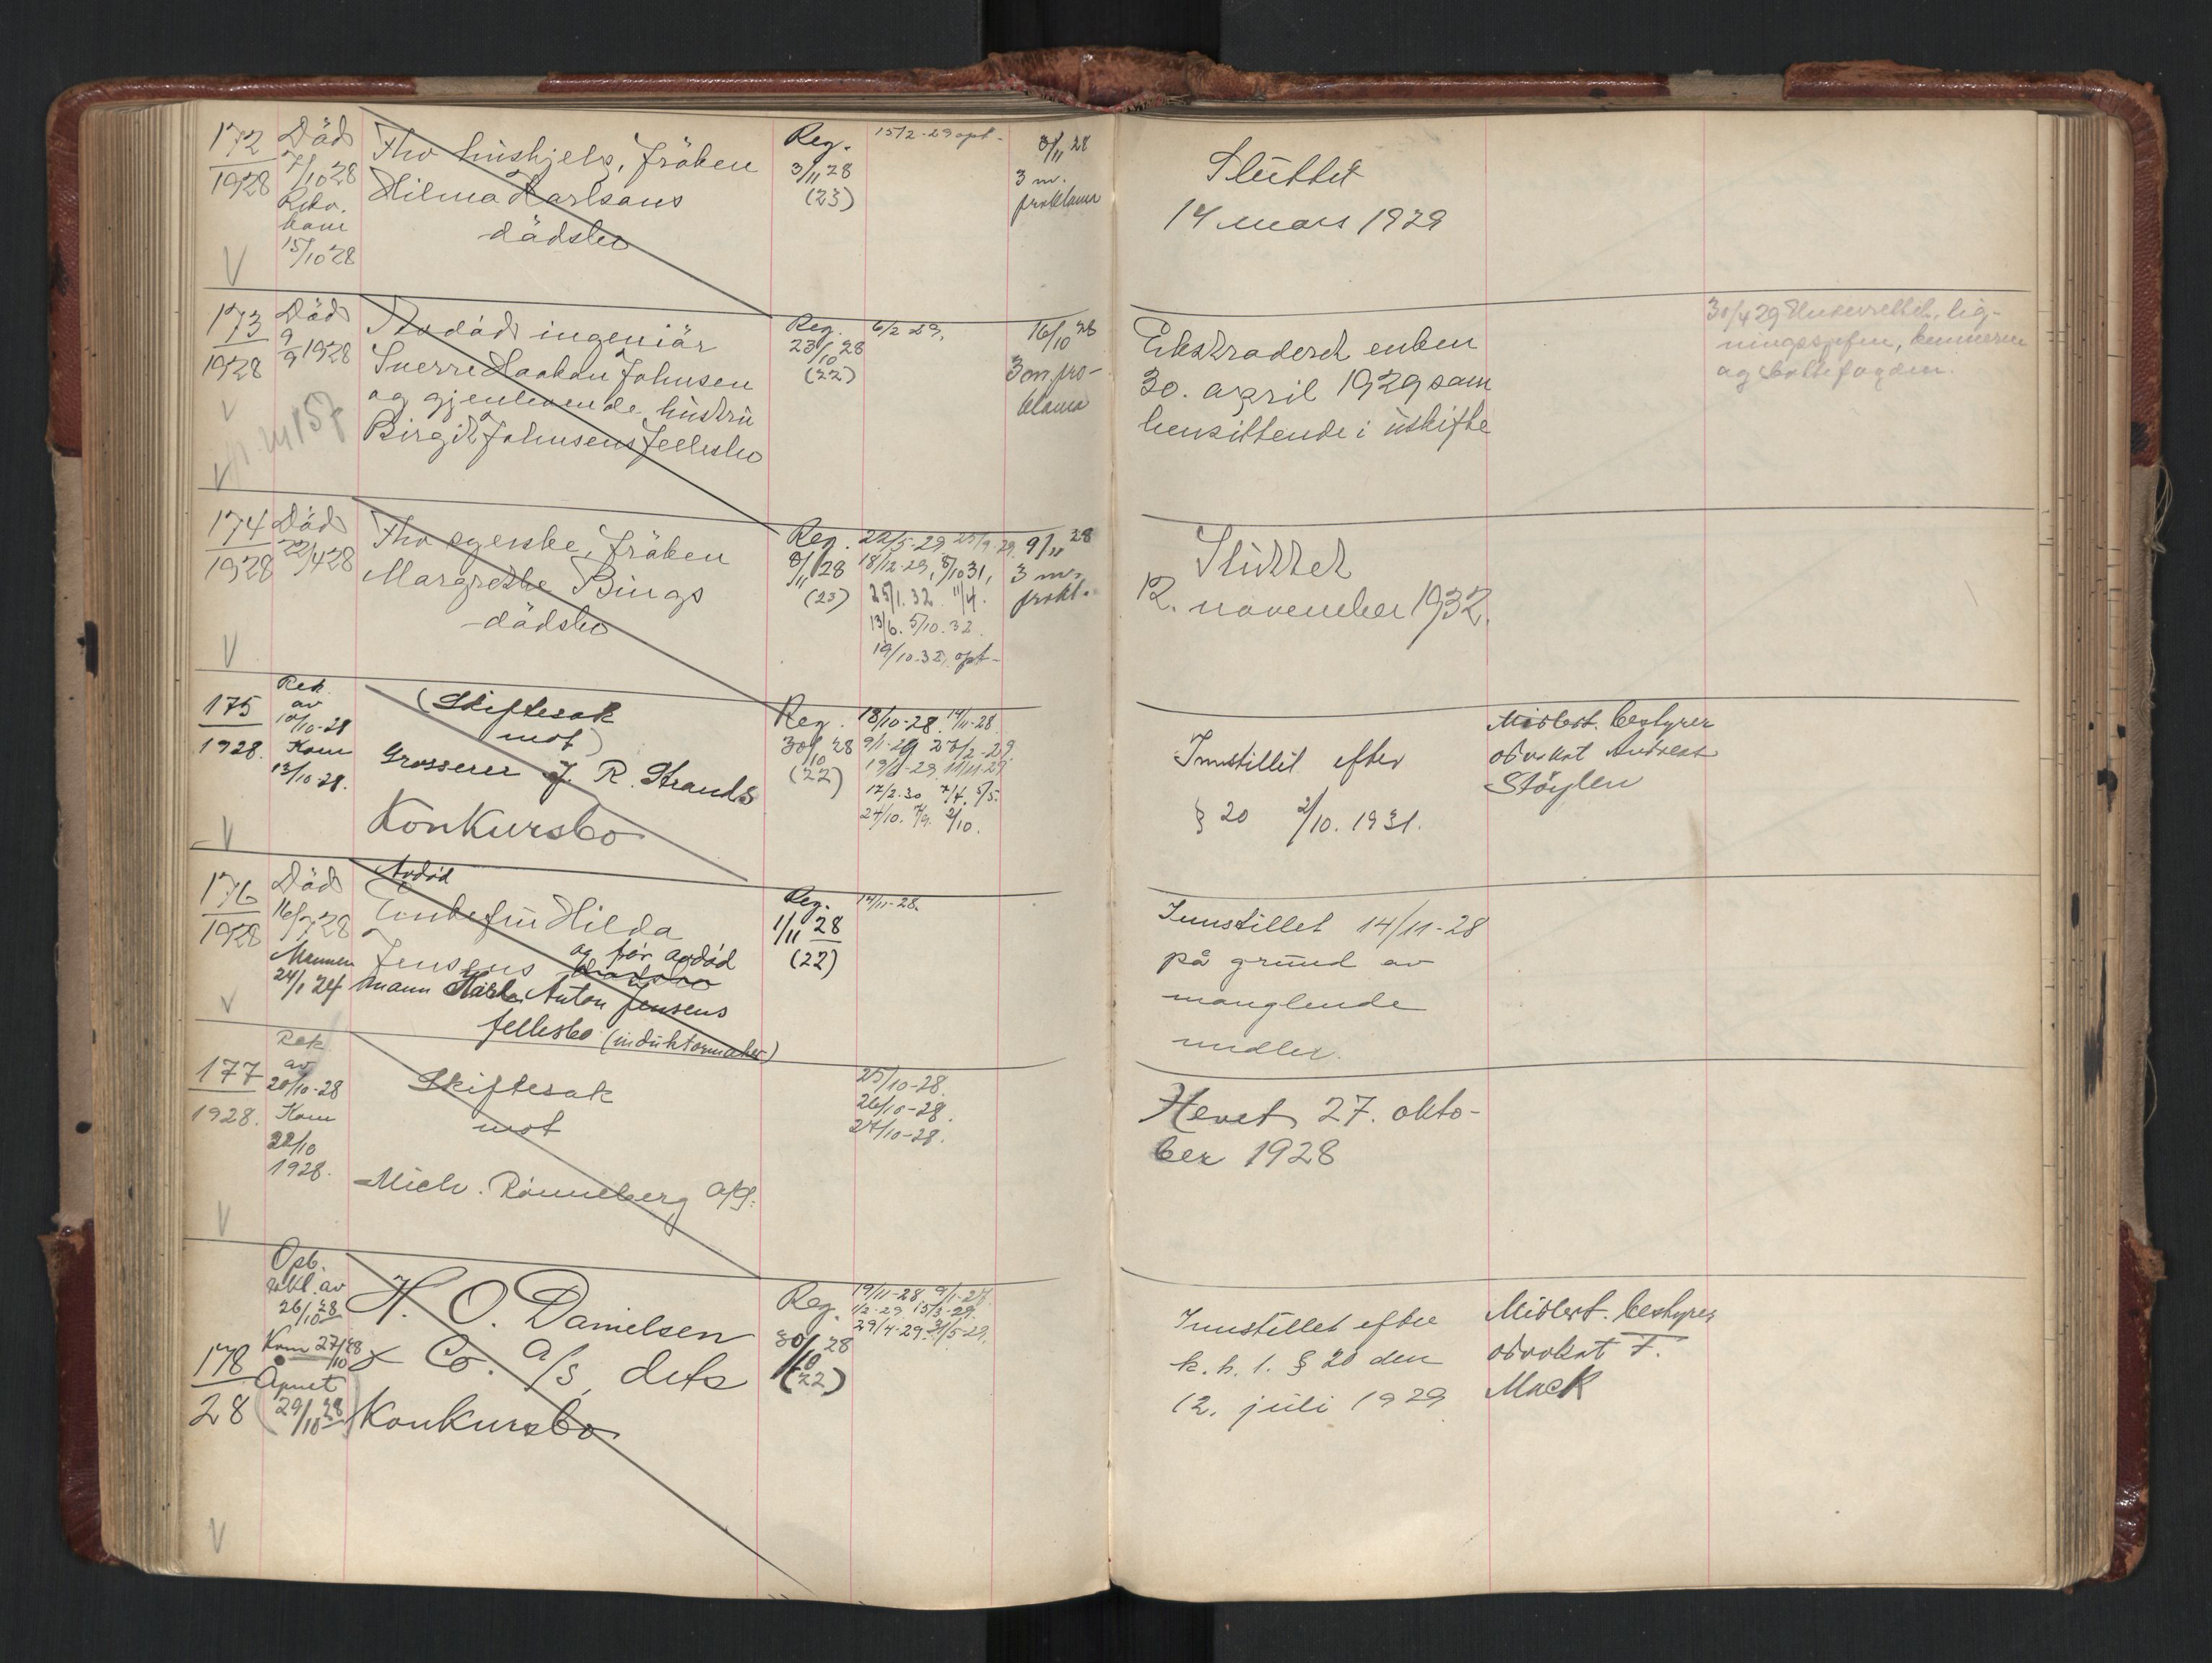 172
1928
Död
7/10 28
Rekv.
kom
15/10 28
V
Fhv hushjelp, fröken
Hilma Karlsens
dödsbo
Reg.
3/11 28
(23)
15/2-29 opt-
3/11 28
3 m.
proklama
Sluttet
14 mars 1929
173
1928
Död
9/9 1928
V
Avdöd ingeniör
Sverre Haakon Johnsen
og gjenlevende hustru
Birgit Johnsens fellesbo
Reg.
23/10 28
(22)
6/2 29.
16/10 28
3 m. pro-
klama
Ekstradert enken
30. april 1929 som
hensittende i uskifte
30/4 29 Underrettet, lig-
ningssjefen, kemneren
og
174
1928
Död
22/4 28
V
Fhv syerske, fröken
Margrethe Bings
dödsbo
Reg.
8/11 28
(23)
22/5-29. 25/9-29.
18/12-29, 8/10 31,
25/1.32. 11/4.
13/6. 5/10.32.
19/10.32. opt-
9/11 28
3 m.
prokl.
Sluttet
12. november 1932.
175
1928.
Rek.
av
10/10-28
Kom
13/10-28.
V
(Skiftesak
mot)
Grosserer J. R. Strands
Konkursbo
Reg.
30/10 28
(22)
18/10-28. 14/11-28.
9/1-29
11/11-29
17/2.30 7/4. 5/5.
2/10.
Innstillet efter
§ 20 2/10. 1931.
Midlert. bestyrer
advokat Andreas
Støylen
176
1928
Död
16/7 28
Mannen
24/1 24
V
Avdöd
Enkefru Hilda
Jensens og før avdöd
mann Anton Jensens
fellesbo (induktormaker)
Reg.
1/11 28
(22)
14/11-28.
Innstillet 14/11-28
på grunn av
manglende
midler.
177
1928.
Rek.
av
20/10-28
Kom
22/10
1928.
V
Skiftesak
mot
Mich. Rönneberg A/S.
25/10-28.
26/10-28.
27/10-28.
Hevet 27. okto-
ber 1928
178
28
Opb.
erkl. av
26/10 28
Kom 27/10 28
Åpnet
(29/10 28)
V
H. O. Danielsen
& Co. A/S, dets
Konkursbo
Reg.
30/10 28
(22)
19/11-28. 9/1-29
1/2-29. 15/3-29.
29/4-29. 31/5-29.
Innstillet efter
k. k. l. § 20 den
12. juli 1929
Midlert. bestyrer
advokat F.
Mack